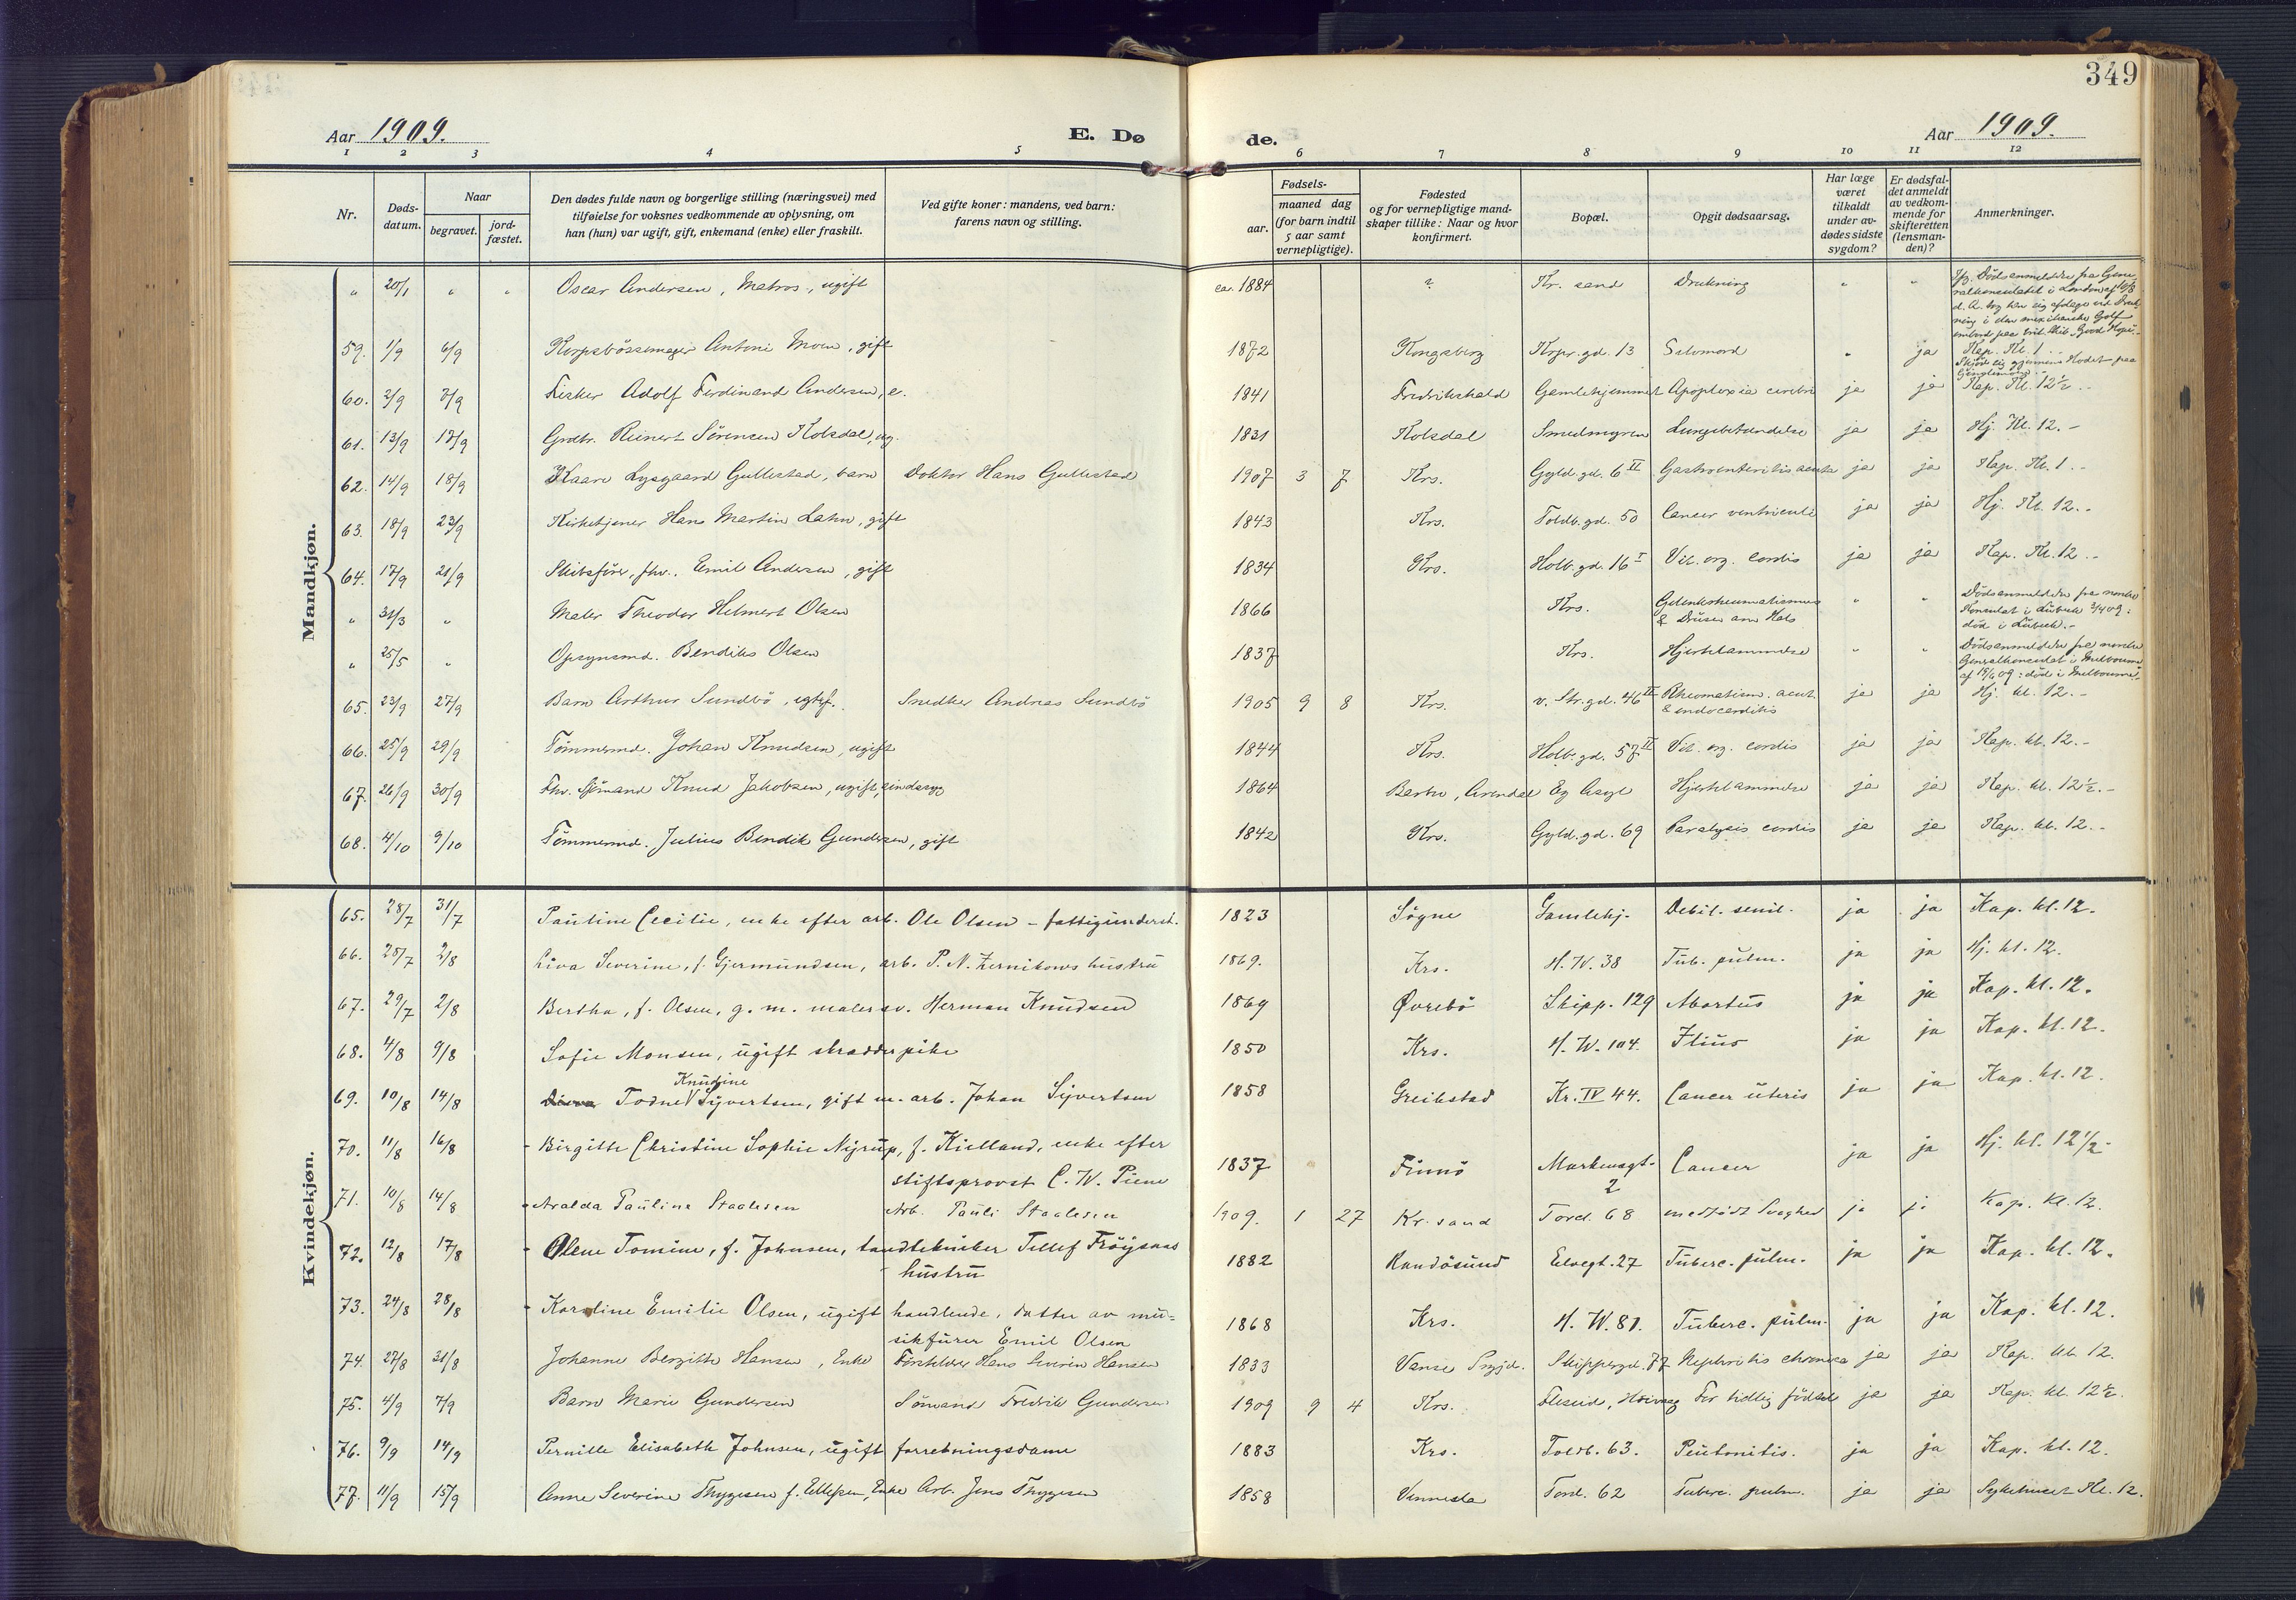 349
Aar 1909.
E. Dø
de.
Aar 1909.
1 2 3 4 5 6 7 8 9 10 11 12
Nr.
Døds-
datum.
Naar
begravet.
jord-
fæstet.
Den dødes fulde navn og borgerlige stilling (næringsvei) med
tilføielse for voksnes vedkommende av oplysning, om
han (hun) var ugift, gift, enkemand (enke) eller fraskilt.
Ved gifte koner: mandens, ved barn:
farens navn og stilling.
Fødsels-
aar.
maaned dag
(for barn indtil
5 aar samt
vernepligtige).
Fødested
og for vernepligtige mand-
skaper tillike: Naar og hvor
konfirmert.
Bopæl.
Opgit dødsaarsag.
Har læge
været
tilkaldt
under av-
dødes sidste
sygdom?
Er dødsfal-
det anmeldt
av vedkom-
mende for
skifteretten
(lensman-
den)?
Anmerkninger.
Mandkjøn.
" 20/1 " " Oscar Andersen, Matros, ugift ca. 1884 ? Kr. sand Drukning " "
59. 1/9 6/9 Korpsbøssemager Antoni Moen, gift 1872 Kongsberg Krpr. gd. 13 Selvmord " ja Kap. Kl. 1
60. 2/9 7/9 Fisker Adolf Ferdinand Andersen, e. 1841 Fredrikshald Gamlehjemmet Apoplexia cerebri ja ja Kap. Kl. 12½ .-
61. 13/9 17/9 Grdbr. Reinert Sørensen Kolsdal, ug. 1831 Kolsdal Smedmyren Lungebetændelse ja ja Hj. Kl. 12. -
62. 14/9 18/9 Kaare Lysgaard Gullestad, barn Doktor Hans Gullestad 1907 3 7 Krs. Gyld. gd. 6 II Gastroenteritis acuta ja ja Kap. Kl. 1 .-
63. 18/9 23/9 Kirketjener Hans Martin Lahn, gift 1843 Krs. Toldb. gd. 50 Cancer ventriculi ja ja Hj. Kl. 12. -
64. 17/9 21/9 Skibsfører, fhv., Emil Andersen, gift 1834 Krs. Holb. gd. 16 I Vit. org. cordis ja ja Kap. Kl. 12 .-
" 31/3 " Maler Theodor Helmert Olsen 1866 Krs. Gelenkrheumatismus
& Drüsen am Hals " " Dødsanmeldelse fra norske
Konsulat i Lübeck 3/4 09:
død i Lübeck. -
" 25/5 " Opsynsmd. Bendiks Olsen 1837 Krs. Hjertelammelse " " Dødsanmeldelse fra norske
Generalkonsulat i Melbourne
af 18/6 09: død i Melbourne.
65. 23/9 27/9 Barn Arthur Sundbø, egtef. Snedker Andreas Sundbø 1905 9 8 Krs. v. Str. gd. 46 III Rheumatism. acut.
& endocarditis ja ja Hj. kl. 12. -
66. 25/9 29/9 Tømmermd. Johan Knudsen, ugift 1844 Krs. Holb. gd. 57 II Vit. org. cordis ja ja Kap. kl. 12. -
67. 26/9 30/9 Fhv. Sjømand Knud Jakobsen, ugift, sindssyg 1864 Barbu, Arendal Eg Asyl Hjertelammelse ja ja Kap. kl. 12½. -
68. 4/10 9/10 Tømmermd. Julius Bendik Gundersen, gift 1842 Krs. Gyld. gd. 69 Paralysis cordis ja ja Kap. kl. 12. -
Kvindekjøn.
65. 28/7 31/7 Pauline Cecilie, enke efter arb. Ole Olsen - fattigunderst. 1823 Søgne Gamlehj. Debil. senil. ja ja Kap. kl. 12.
66. 28/7 2/8 Liva Severine, f. Gjermundsen, arb. P. N. Zernikows hustru 1869. Krs. H. W. 38 Tub. pulm. ja ja Hj. kl. 12.
67. 29/7 2/8 Bertha, f. Olsen, g. m. malersv. Herman Knudsen 1869 Øvrebø Skipp. 129 Abortus ja ja Kap. kl. 12.
68. 4/8 9/8 Sofie Monsen, ugift skrædderpike 1850 Krs. H. W. 104. Ilius ja ja Kap. kl. 12.
69. 10/8 14/8 Todne Knudine Syvertsen, gift m. arb. Johan Syvertsen 1858 Greibstad Kr. IV 44. Cancer uteris ja ja Kap. kl. 12.
70. 11/8 16/8 - Birgitte Christine Sophie Nyrup, f. Kielland, enke efter
stiftsprovst C. W. Piene 1837 Finnø Markensgt. 2 Cancer ja ja Hj. kl. 12 1/2 -
71. 10/8 14/8 - Aralda Pauline Staalesen Arb. Pauli Staalesen 1909. 1 27 Kr. sand Tord. 68 medfødt Svaghed ja ja Kap. Kl. 12.
72. 12/8 17/8 - Olene Tomine, f. Johnsen, tandtekniker Tellef Frøysaas
hustru 1882 Randøsund Elvegt. 27 Tuberc. pulm. ja ja Kap. kl. 12.
73. 24/8 28/8 - Karoline Emilie Olsen, ugift handlende, datter av mu-
sikfører Emil Olsen 1868 Krs. H. W. 81. Tuberc. pulm. ja ja Kap. kl. 12.
74. 27/8 31/8 Johanne Bergitte Hansen, Enke Hans Severin Hansen 1833 Vanse Skippergd. 77 Nephritis chronica ja ja Kap. kl. 12.
75. 4/9 7/9 Barn Marie Gundersen Sømand Fredrik Gundersen 1909 9 4 Krs. For tidlig fødsel ja ja Kap. kl. 12½.
76. 9/9 14/9 Pernille Elisabeth Johnsen, ugift forretningsdame 1883 Krs. Toldb. 63. Peritonitis. ja ja Kap. kl. 12.
77. 11/9 15/9 Anne Severine Thygesen f. Ellefsen, Enke Arb. Jens Thygesen 1858 Vennesla Tord. 62 Tuberc. pulm. ja ja Sykehuset Kl. 12.